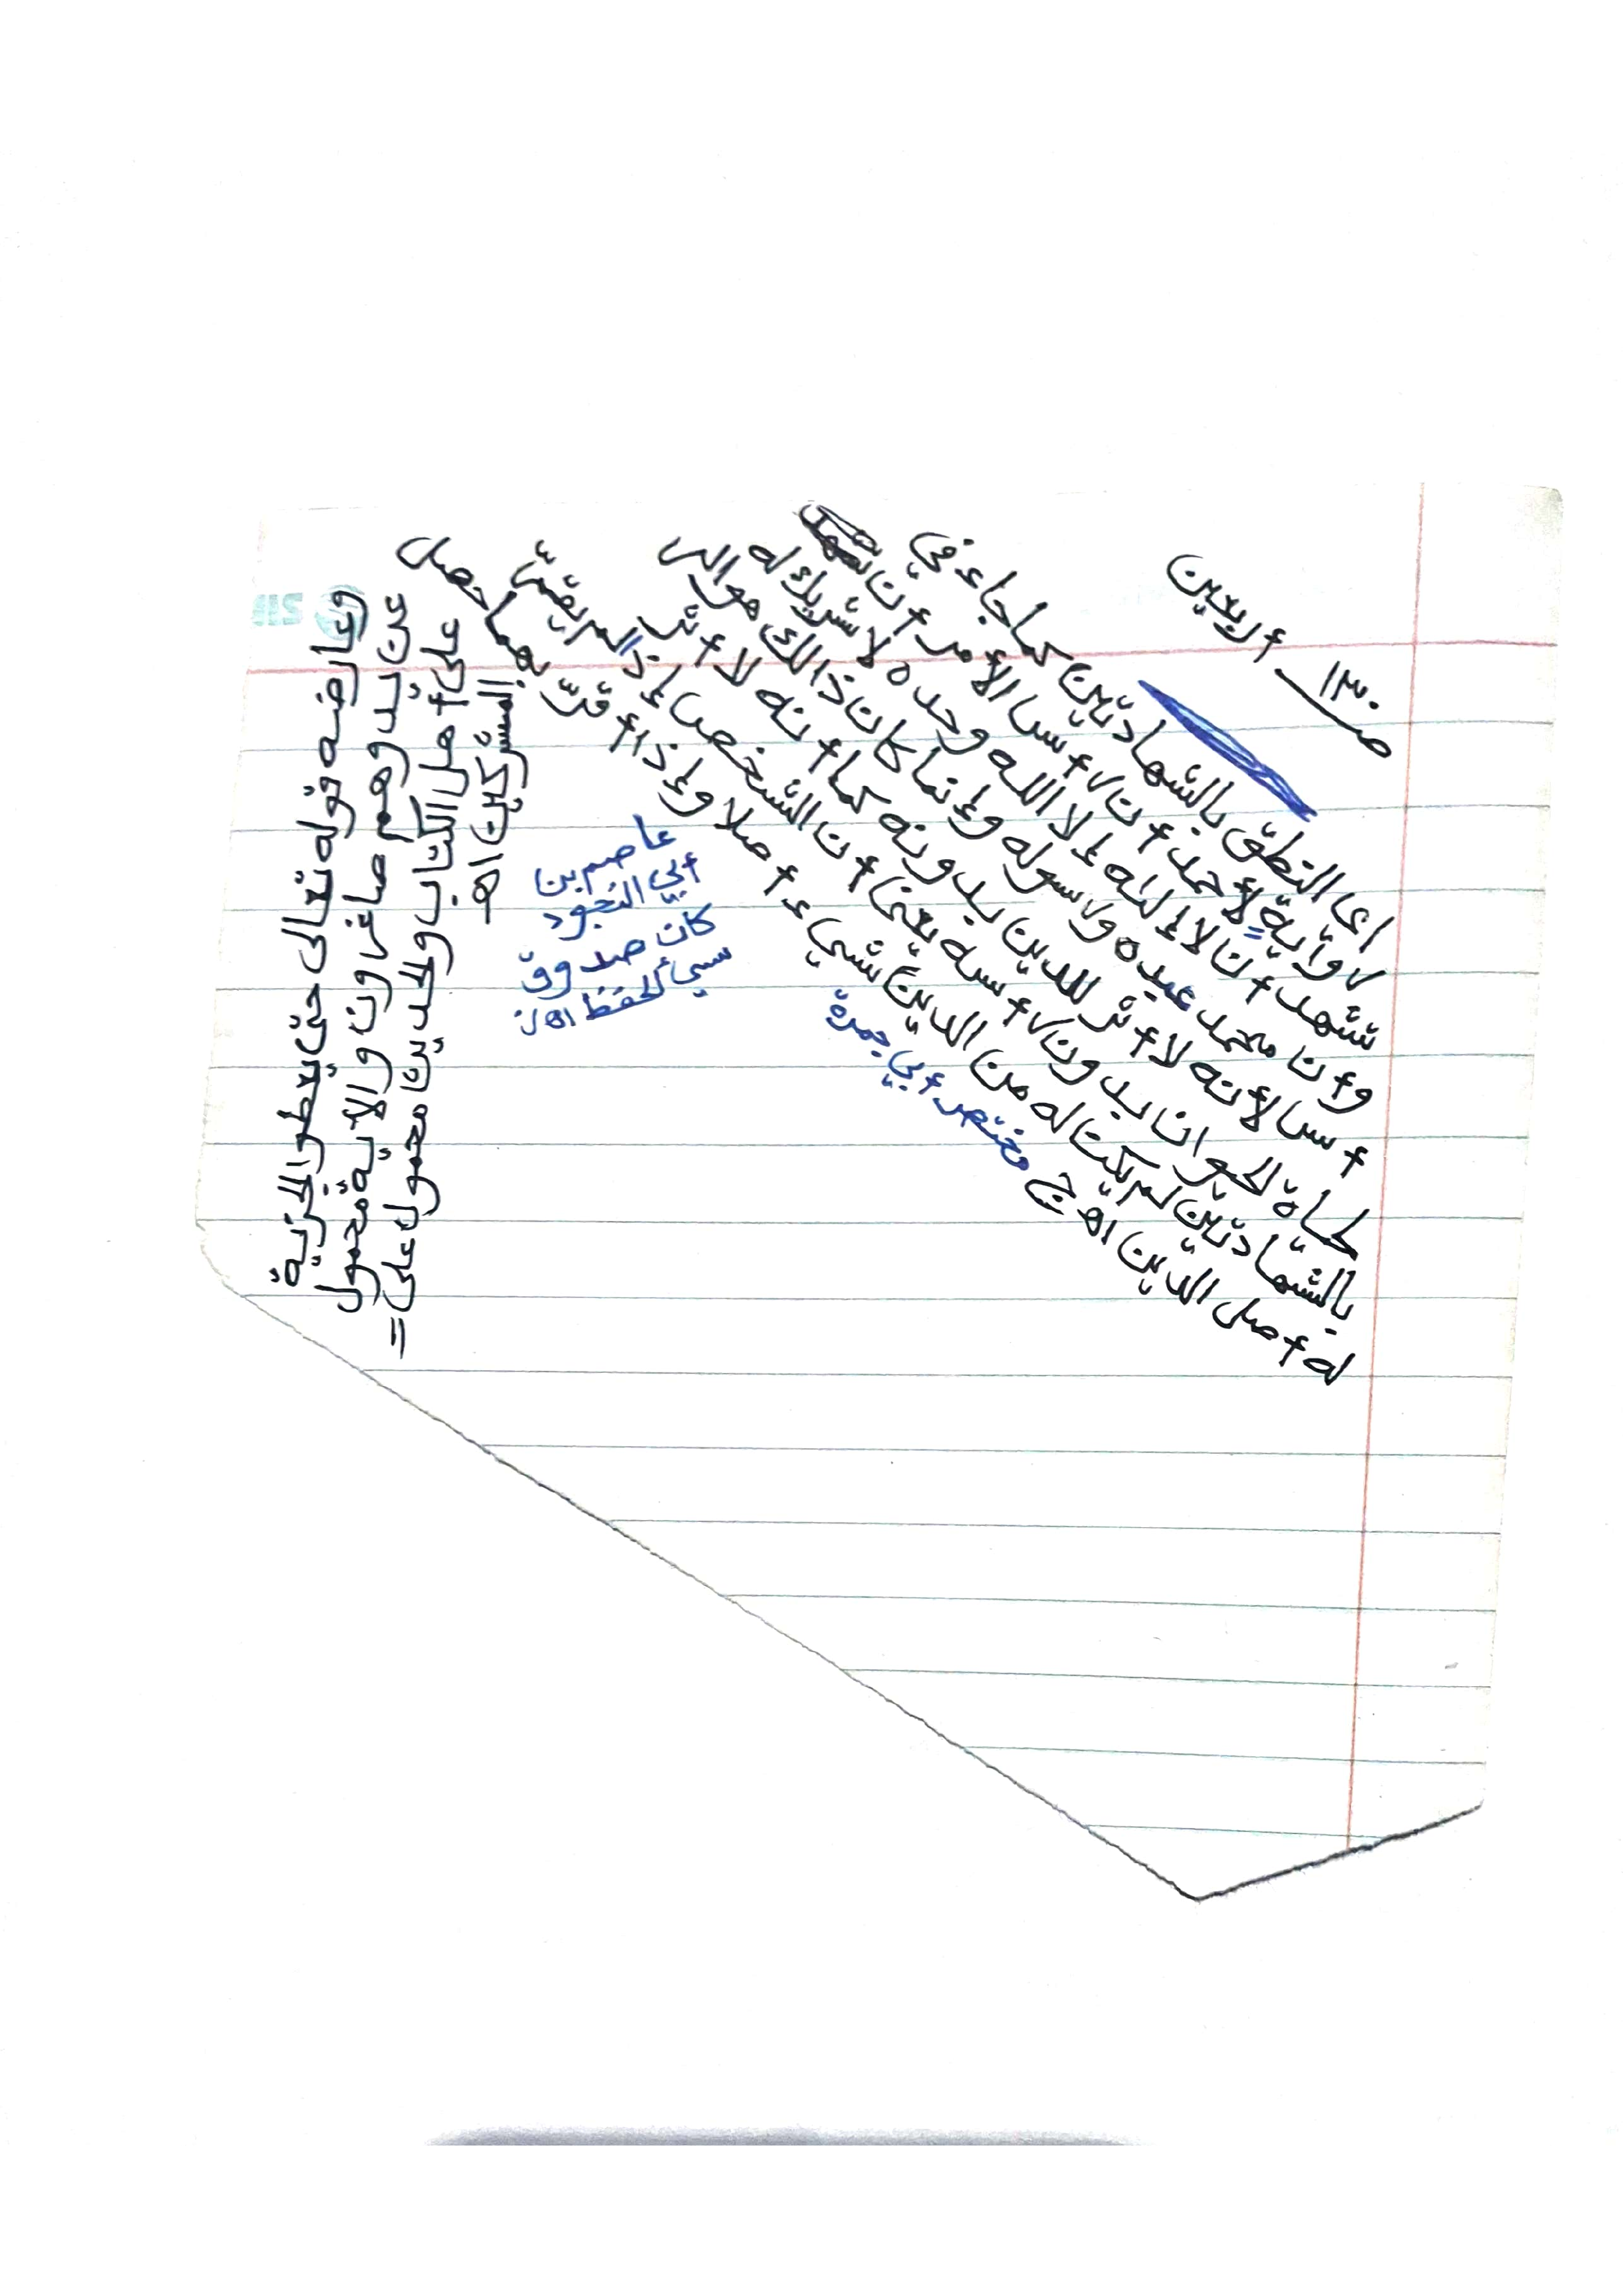 صـ ١٣٠ أربعين
أى النطق بالشهادتين كما جاء في
رواية لأحمد أن رأس الأمر أن
تشهد أن لا إله إلا الله وحده لا شريك له
وأن محمد عبده ورسوله وإنما كان ذالك هو الر
أس لأنه لا أثر للدين بدونه كما أنه لا أثر
لحياة الحيوان بدون رأسه يعنى أن الشخص إذ الم يقتّ
بالشهادتين لم يكن له من الدين شيء أصلا وإذا أقرّ بهما حصل
له أصل الدين اهـ ج مختصر أبي جمرة
عاصم بن
أبي النجود
كان صدوق
سيئ الحفظ اهـ ن
وعارضه قوله تعالى حتى يعطوا الجزية
عن يد وهم صاغرون والآية محمول
على أهل الكتاب والحديث محمول على =
المشركين اهـ